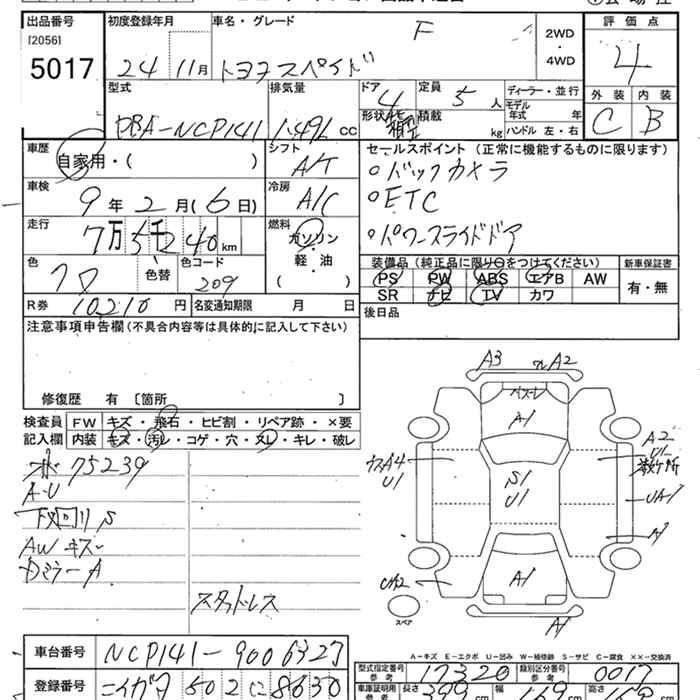 出品番号
[2056]
5017
初度登録年月
24 11月
車名・グレード
F
トヨタ スペイド
2WD
・
4WD
評価点
4
外装 内装
C B
型式
DBA-NCP141
排気量
1.49L CC
ドア
4
形状
定員
5 人
積載
kg
ディーラー・並行
モデル
年式 年
ハンドル 左・右
車歴
自家用・( )
シフト
A/T
車検
9年 2月(6日)
冷房
A/C
走行
7万5千240km
燃料
ガソリン
・
軽・油
( )
色
クロ
色替
色コード
209
R券 10210円
名変通知期限 月 日
セールスポイント(正常に機能するものに限ります)
○バックカメラ
○ETC
○パワースライドドア
装備品(純正品に限り○をつけてください)
PS PW ABS エアB AW
SR ナビ TV カワ
新車保証書
有・無
後日品
注意事項申告欄(不具合内容等は具体的に記入して下さい)
修復歴 有〔箇所 〕
検査員
記入欄
FW キズ・飛石・ヒビ割・リペア跡・×要
内装 キズ・汚レ・コゲ・穴・スレ・キレ・破レ
75239
A-U
下回りS
AWキズ
DミラーA
スタッドレス
A3
A2
A1
A4
U1
S1
U1
A2
U1
数ケ所
UA1
A1
UA2
A1
A1
スペア
A-キズ E-エクボ U-凹み W-補修跡 S-サビ C-腐食 ××-交換済
車台番号
NCP141-9006327
登録番号
ニイガタ 502 に 8630
型式指定番号
参考
17320
類別区分番号
参考
0017
車庫証明用
参考
長さ
399 cm
幅
169 cm
高さ